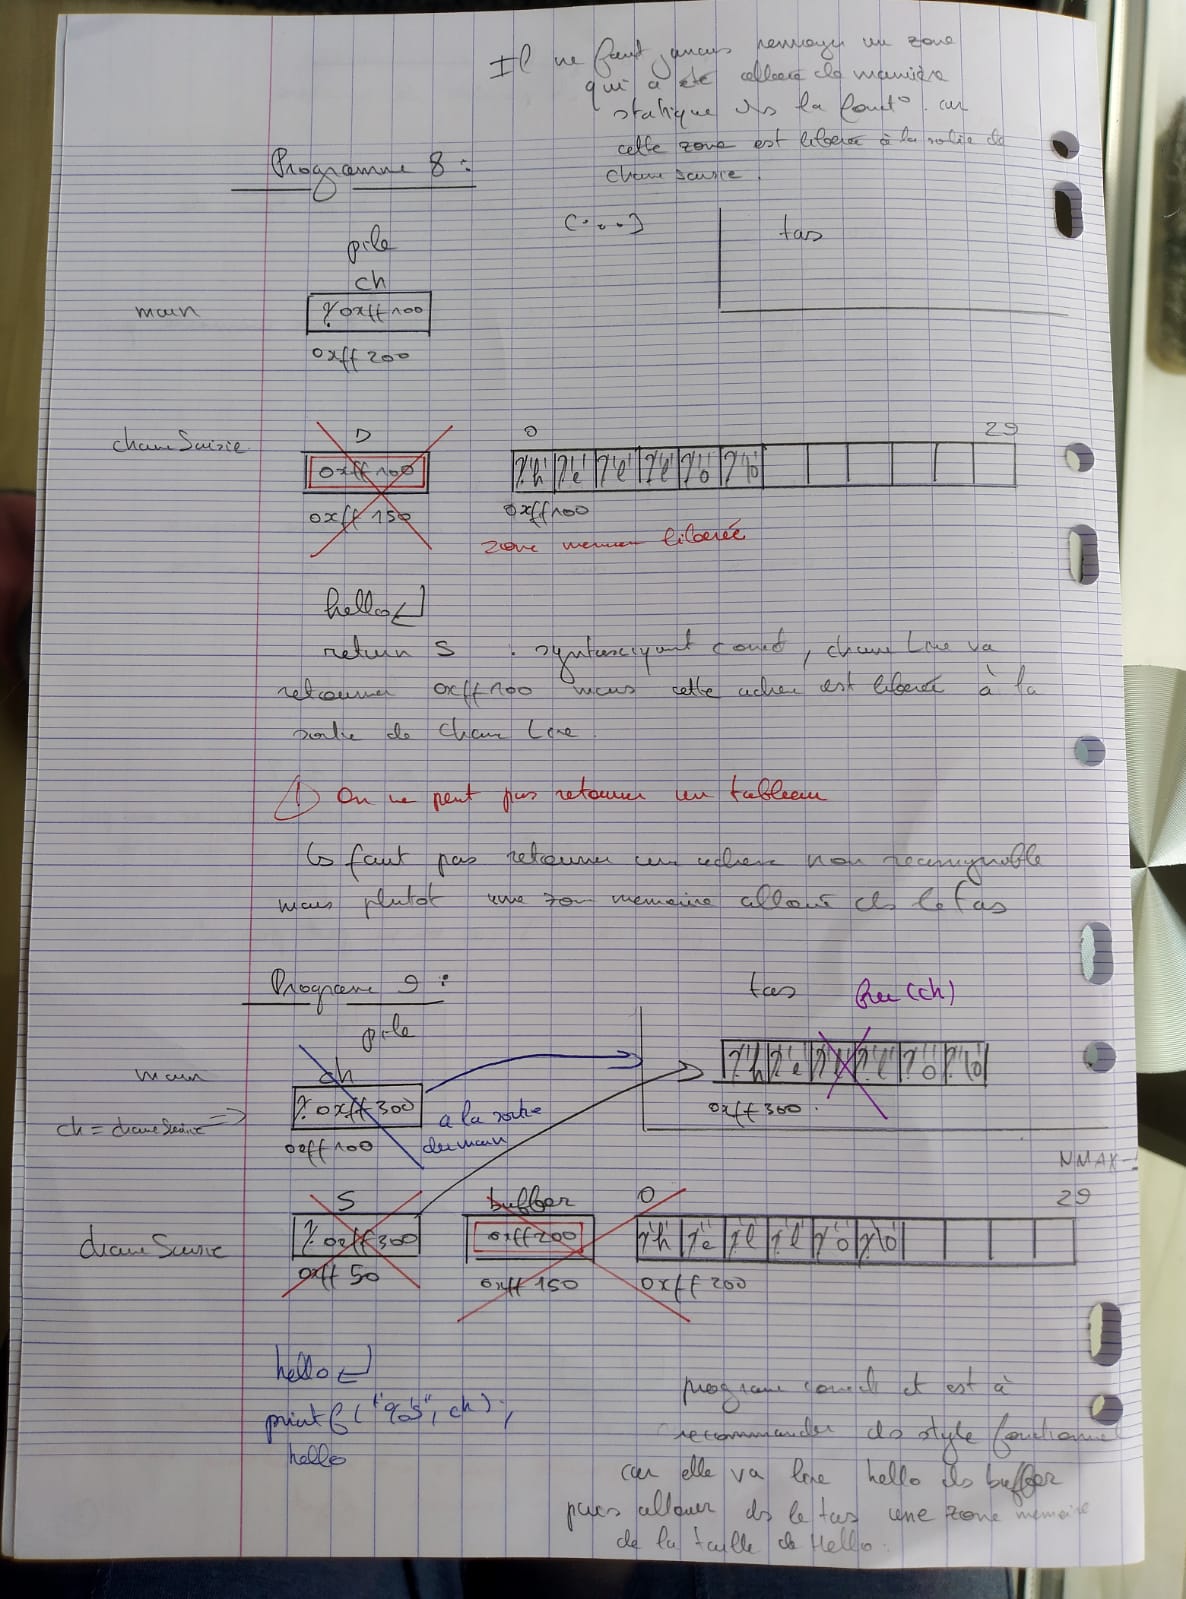 Il ne faut jamais renvoyer un zone
qui a été allouée de manière
statique ds la fonct° car
cette zone est liberée à la sortie de
chaine saisie.
Programme 8 :
pile
(...)
tas
ch
main
? 0xff100
0xff200
chaineSaisie
0
29
0xff100
'h' 'e' 'l' 'l' 'o' '\0'
0xff150
0xff100
zone memoire liberée
hello↵
return S . syntaxiquemt correct, chaine Lire va
retourner 0xff100 mais cette adresse est liberée à la
sortie de chaine Lire.
! On ne peut pas retourner un tableau
↳ faut pas retourner une adresse non
mais plutot une zone memoire alloué ds le tas
Programe 9 :
tas
free(ch)
pile
main
ch
? 'h' ? 'e' ? 'l' ? 'l' ? 'o' ? '\0'
? 0xff300
0xff300.
ch = chaineSaisie ⇒
a la sortie
du main
0xff100
NMAX-1
S
buffer
0
29
chaineSaisie
? 0xff300
0xff200
? 'h' ? 'e' ? 'l' ? 'l' ? 'o' ? '\0'
0xff 50
0xff 150
0xff 200
hello↵
printf("%s", ch);
hello
programe correct et est à
recommander ds style fonctionnel
car elle va lire hello ds buffer
puis allouer ds le tas une zone memoire
de la taille de Hello.